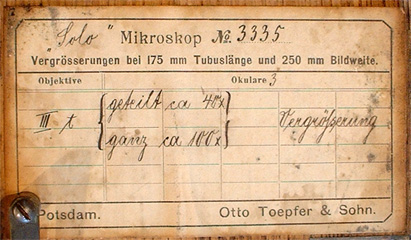 "Solo" Mikroskop No. 3335
Vergrösserungen bei 175 mm Tubuslänge und 250 mm Bildweite.
Objektive Okulare 3
III t geteilt ca 40x Vergrößerung
ganz ca 100x
Potsdam. Otto Toepfer & Sohn.